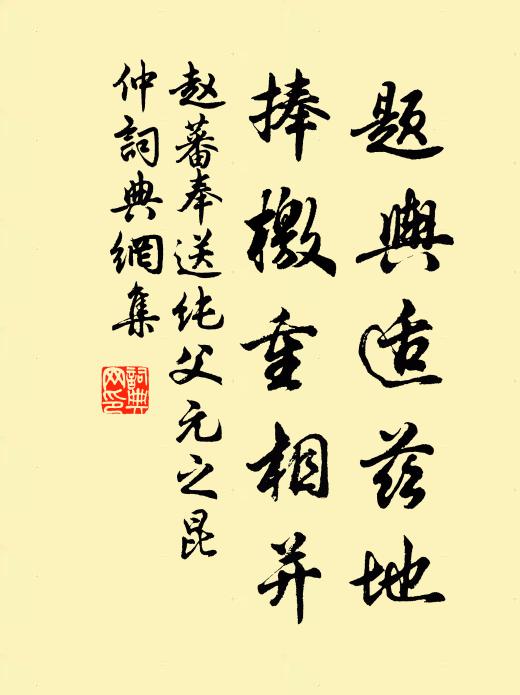 题舆适茲地
捧檄重相并
赵蕃奉送纯父元之昆
仲詞典網集
詞典
网印